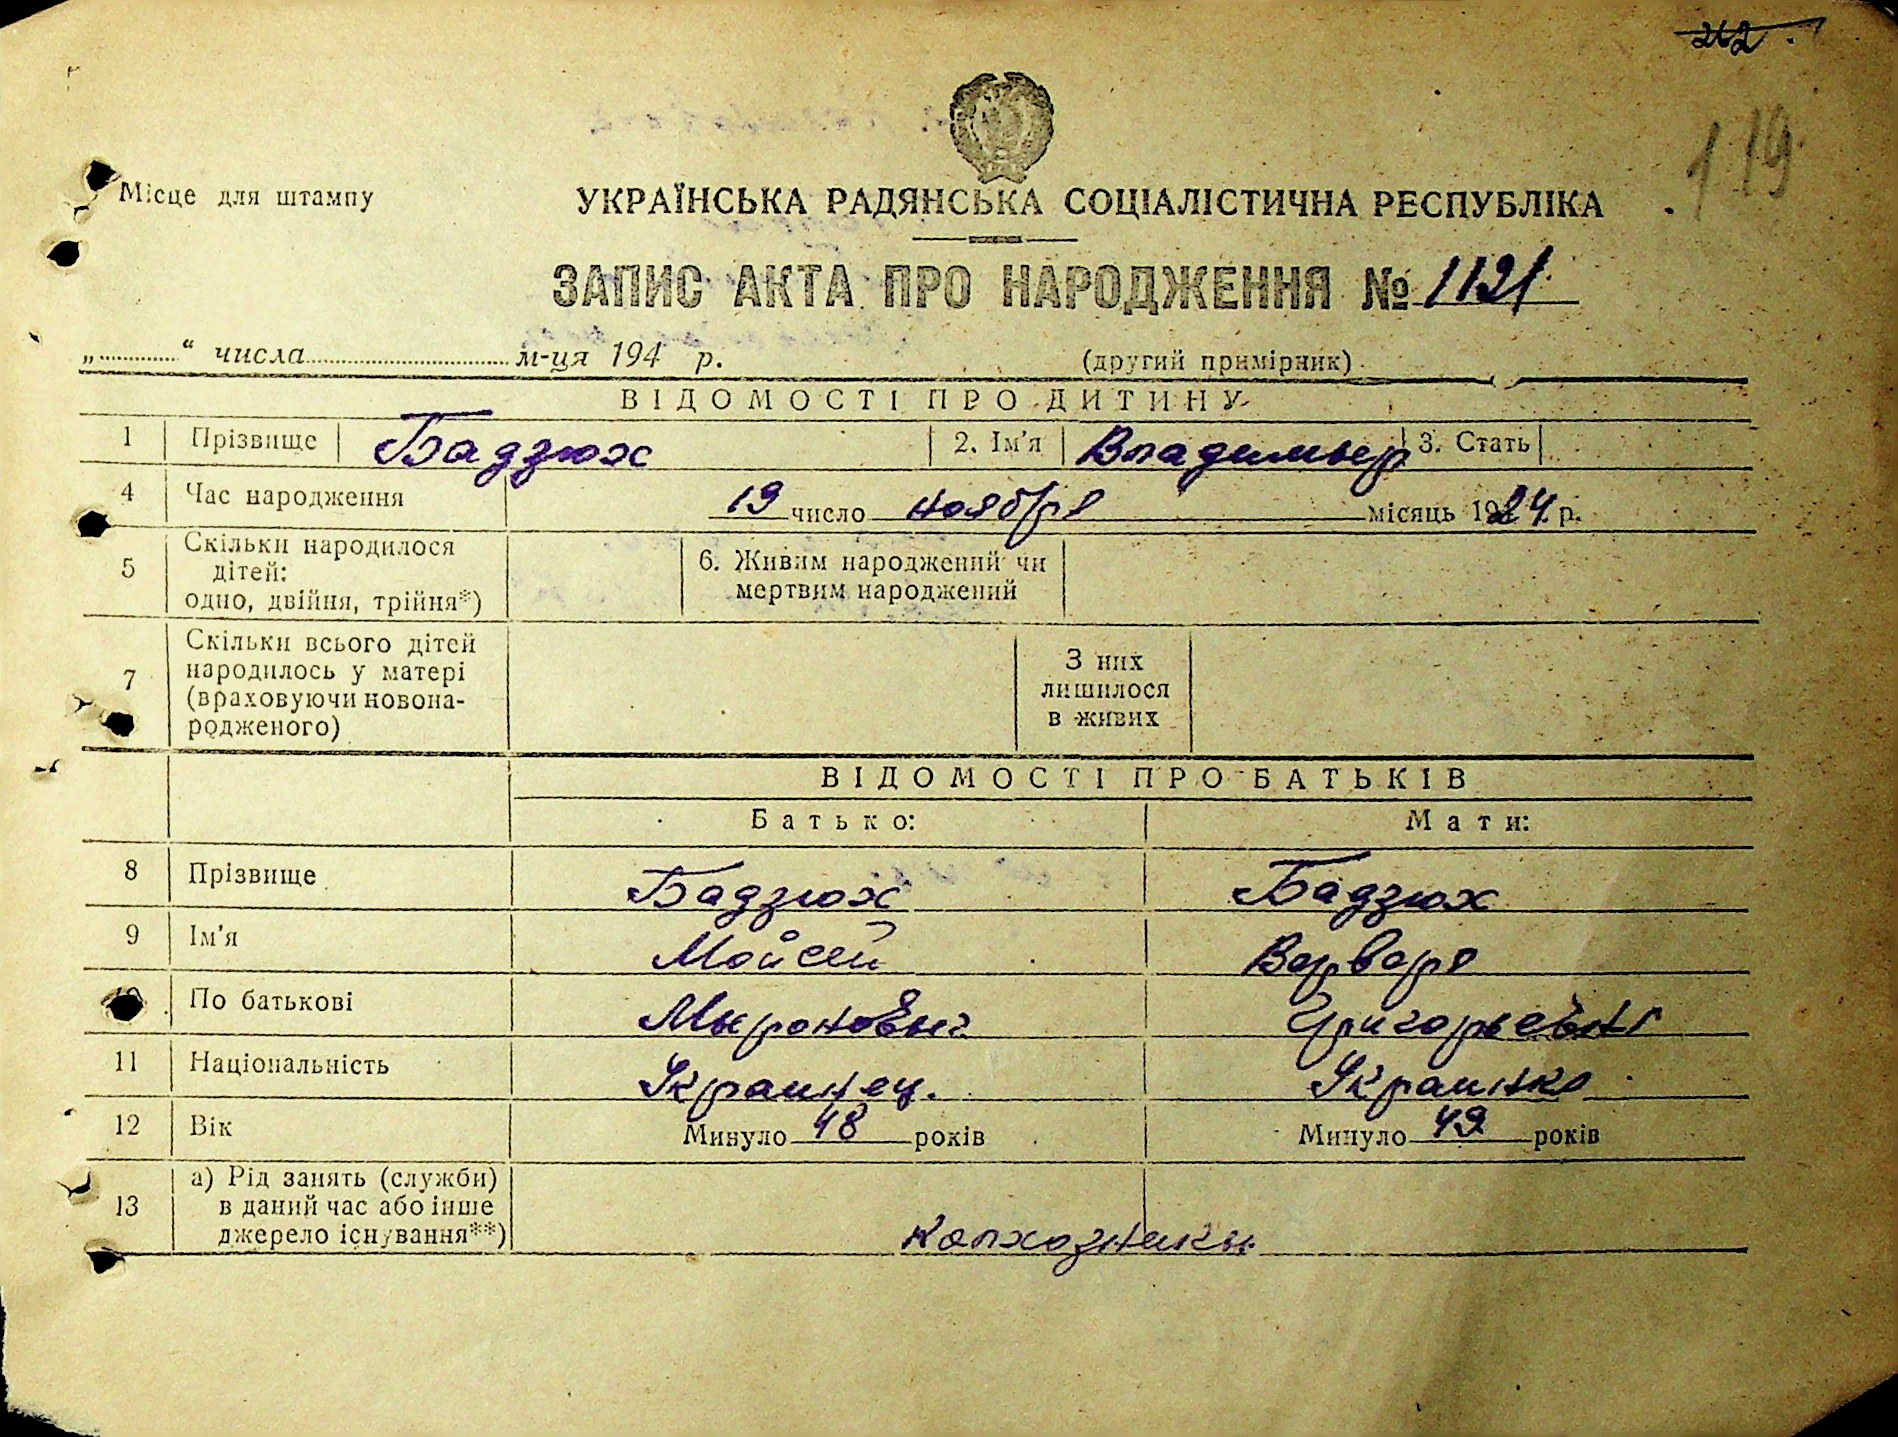 262
119
Місце для штампу
УКРАЇНСЬКА РАДЯНСЬКА СОЦІАЛІСТИЧНА РЕСПУБЛІКА
ЗАПИС АКТА ПРО НАРОДЖЕННЯ № 1121
„ “ числа м-ця 194 р. (другий примірник)
ВІДОМОСТІ ПРО ДИТИНУ
1 Прізвище Бадзюх 2. Ім'я Владимыр 3. Стать
4 Час народження 19 число ноября місяць 1924 р.
5 Скільки народилося дітей: одно, двійня, трійня*) 6. Живим народжений чи мертвим народжений
7 Скільки всього дітей народилось у матері (враховуючи новонародженого) З них лишилося в живих
ВІДОМОСТІ ПРО БАТЬКІВ
Батько: Мати:
8 Прізвище Бадзюх Бадзюх
9 Ім'я Мойсей Варвара
10 По батькові Мыроновыч Григорьевна
11 Національність Украинец. Украинка
12 Вік Минуло 48 років Минуло 49 років
13 а) Рід занять (служби) в даний час або інше джерело існування**) колхозникы